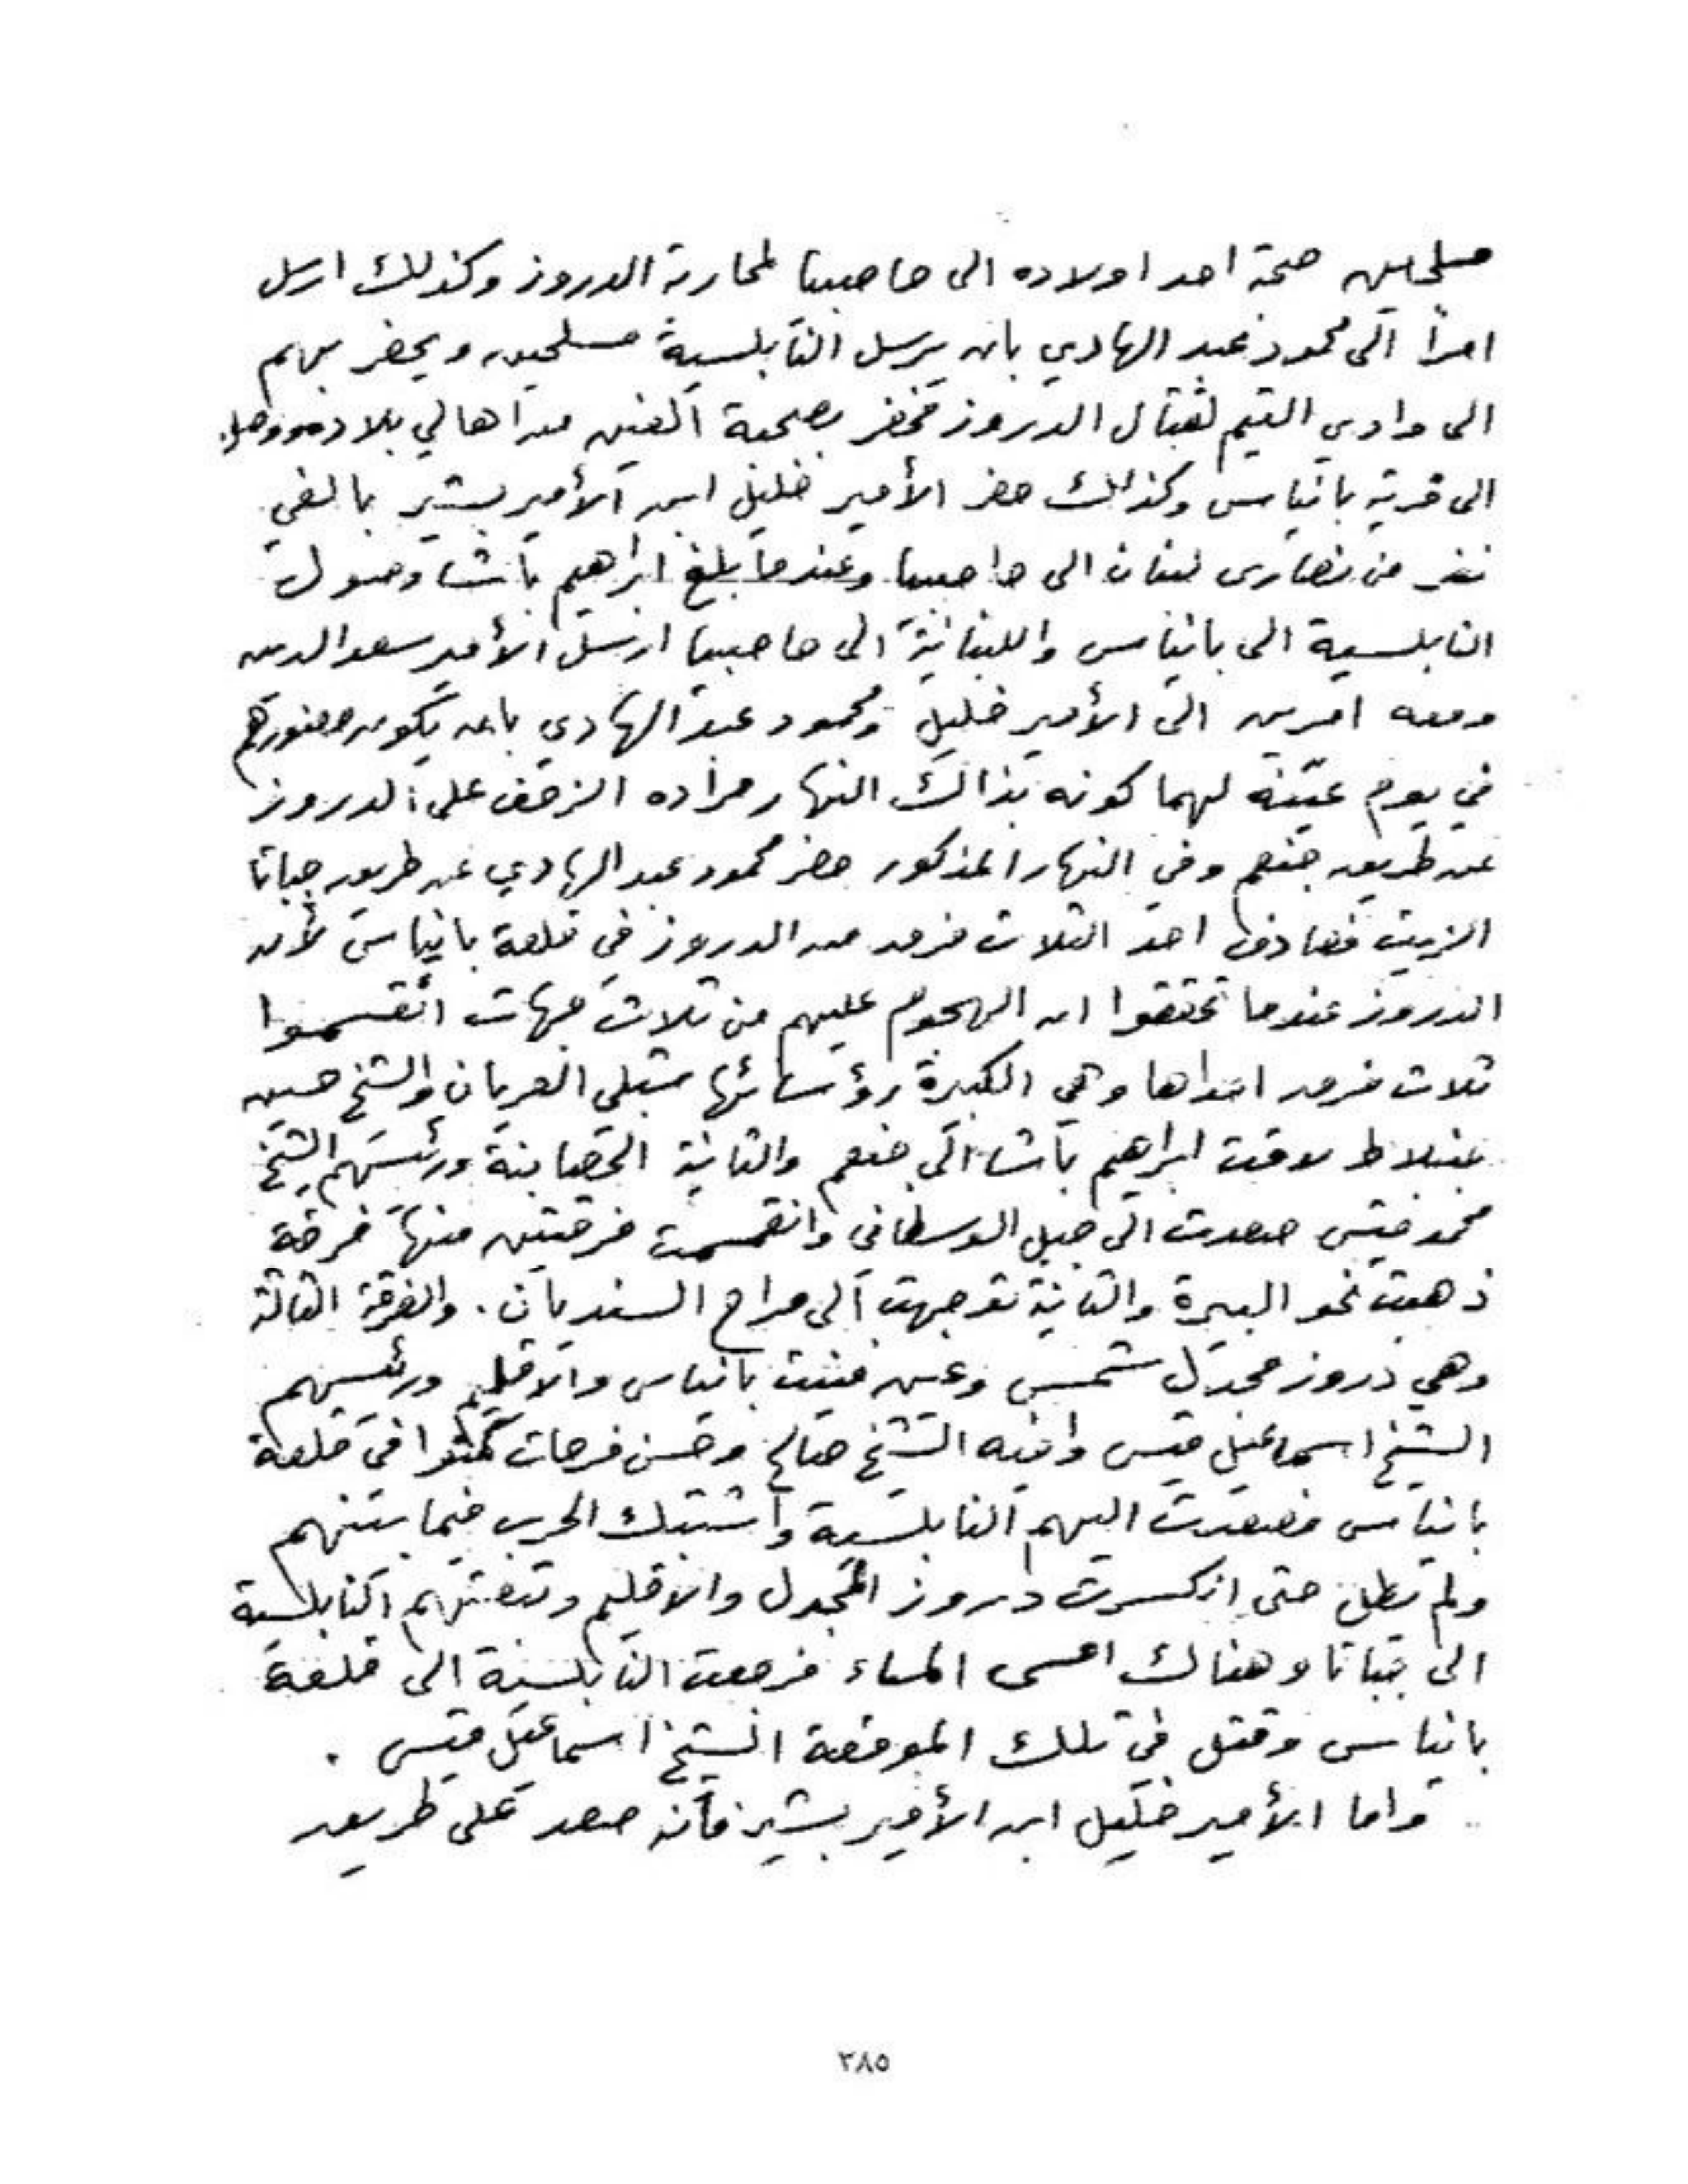 مسلحين صحبة احد اولاده الى حاصبيا لمحاربة الدروز وكذلك ارسل
امراً الى محمود عبد الهادي بان يرسل النابلسية مسلحين ويحضر بهم
الى وادي التيم لقتال الدروز فحضر بصحبة الفين من اهالي بلاده ووصل
الى قرية بانياس وكذالك حضر الأمير خليل ابن الأمير بشير بالفي
نفر من نصارى لبنان الى حاصبيا وعندما بلغ ابراهيم باشا وصول
النابلسية الى بانياس واللبنانية الى حاصبيا ارسل الأمير سعد الدين
ومعه امرين الى الأمير خليل ومحمود عبد الهادي بان يكون حضورهم
في يوم عيّنه لهما كونه بذالك النهار مراده الزحف على الدروز
عن طريق جنعم وفي النهار المذكور حضر محمود عبد الهادي عن طريق جباتا
الزيت فصادف احد الثلاث فرق من الدروز في قلعة بانياس لأن
الدروز عندما تحققوا ان الهجوم عليهم من ثلاث جهات انقسموا
ثلاث فرق احداها وهي الكبيرة رؤسائها شبلي العريان والشيخ حسين
جنبلاط لاقت ابراهيم باشا الى جنعم والثانية الحصابنة ورئيسهم الشيخ
محمد قيس صعدت الى جبل الوسطاني وانقسمت فرقتين منها فرقة
ذهبت نحو البيرة والثانية توجهت الى مراح السنديان . والفرقة الثالثة
وهي دروز مجدل شمس وعين فيت بانياس والاقليم ورئيسهم
الشيخ اسماعيل قيس وابنه الشيخ صالح وحسن فرحات كمنوا في قلعة
بانياس فصعدت اليهم النابلسية واشتبك الحرب فيما بينهم
ولم تطل حتى انكسرت دروز المجدل والاقليم وتبعتهم النابلسية
الى جباتا وهناك امسى المساء فرجعت النابلسية الى قلعة
بانياس وقتل في تلك الموقعة الشيخ اسماعيل قيس .
واما الأمير خليل ابن الأمير بشير فانه صعد على طريق
٣٨٥